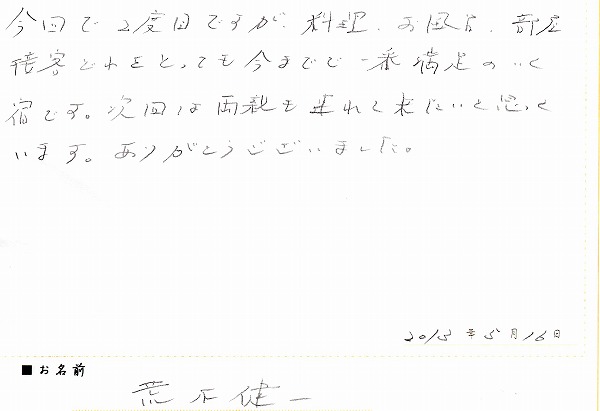 今回で2度目ですが、料理、お風呂、部屋
接客どれをとっても今までで一番満足のいく
宿です。次回は両親も連れて来たいと思って
います。ありがとうございました。
2013年5月16日
■お名前
荒下健一